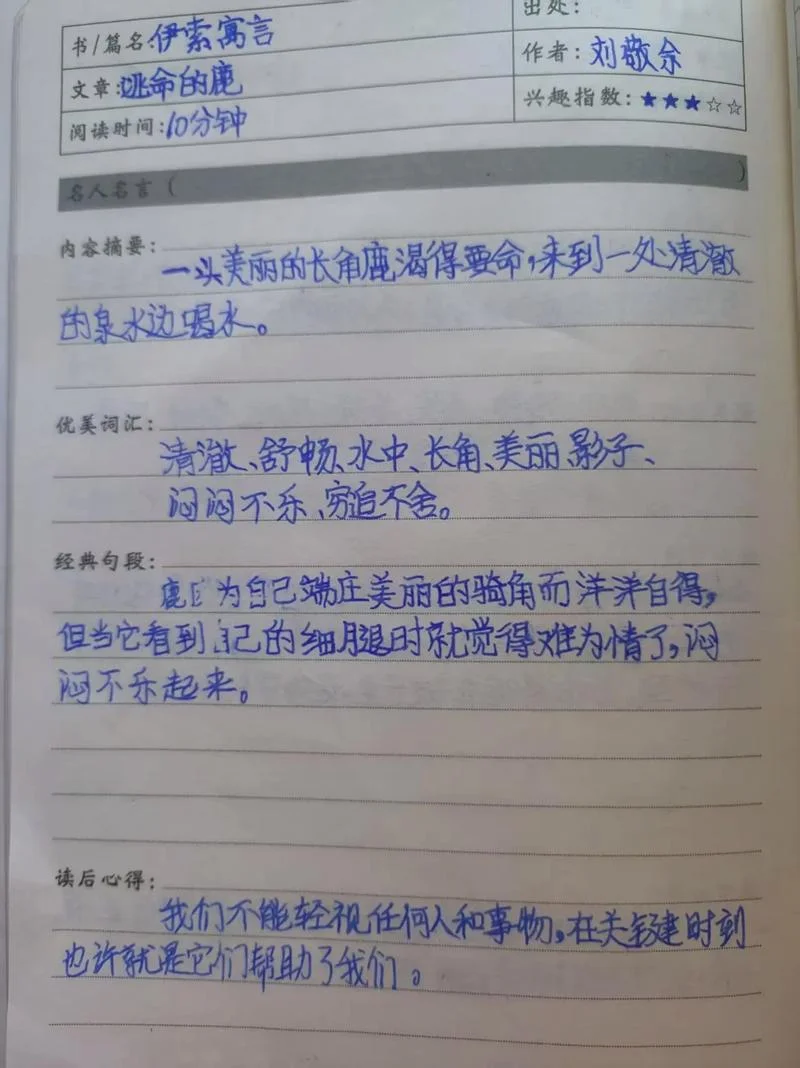 出处:
书/篇名:伊索寓言
作者:刘敬余
文章:逃命的鹿
兴趣指数:★★★☆☆
阅读时间:10分钟
名人名言( )
内容摘要:
一头美丽的长角鹿渴得要命,来到一处清澈
的泉水边喝水。
优美词汇:
清澈、舒畅、水中、长角、美丽、影子、
闷闷不乐、穷追不舍。
经典句段:
鹿为自己端庄美丽的骑角而洋洋自得,
但当它看到自己的细腿时就觉得难为情了,闷
闷不乐起来。
读后心得:
我们不能轻视任何人和事物,在关键时刻
也许就是它们帮助了我们。